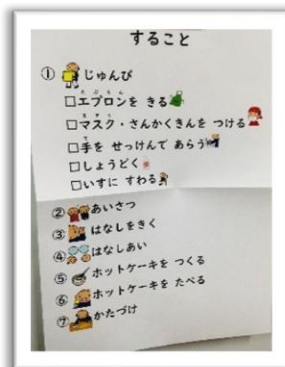 すること
① じゅんび
□エプロンを きる
□マスク・さんかくきんを つける
□手を せっけんで あらう
□しょうどく
□いすに すわる
② あいさつ
③ はなしをきく
④ はなしあい
⑤ ホットケーキを つくる
⑥ ホットケーキを たべる
⑦ かたづけ